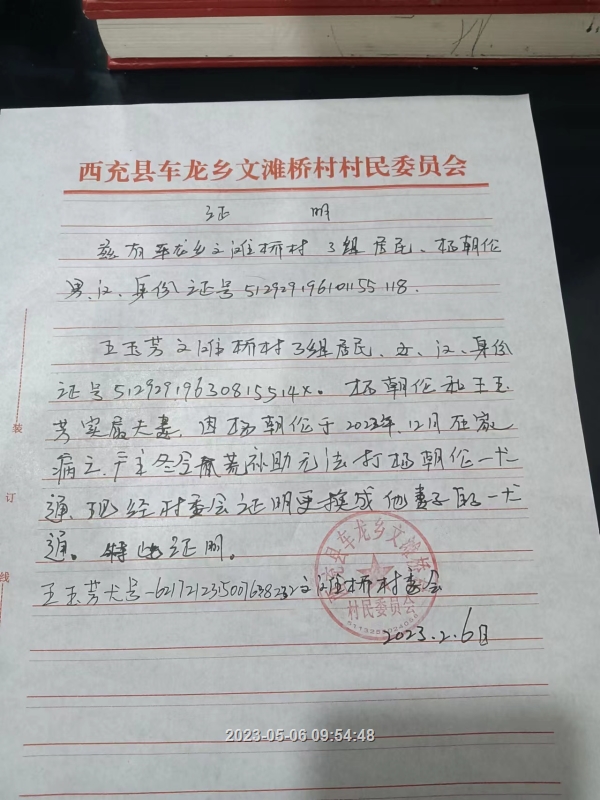 西充县车龙乡文滩桥村村民委员会
证 明
兹有车龙乡文滩桥村3组居民、杨朝伦
男、汉、身份证号512929196101155118.
王玉芳文滩桥村3组居民、女、汉、身份
证号51292919630815514X. 杨朝伦和王玉
芳实属夫妻,因杨朝伦于2022年.12月在家
病亡.户主 补助无法打杨朝伦一卡
通,现经村委会证明更换成他妻子的一卡
通。特此证明。
王玉芳卡号-6217212315007638232文滩桥村委会
村民委员会
2023.2.6日
装
订
线
2023-05-06 09:54:48